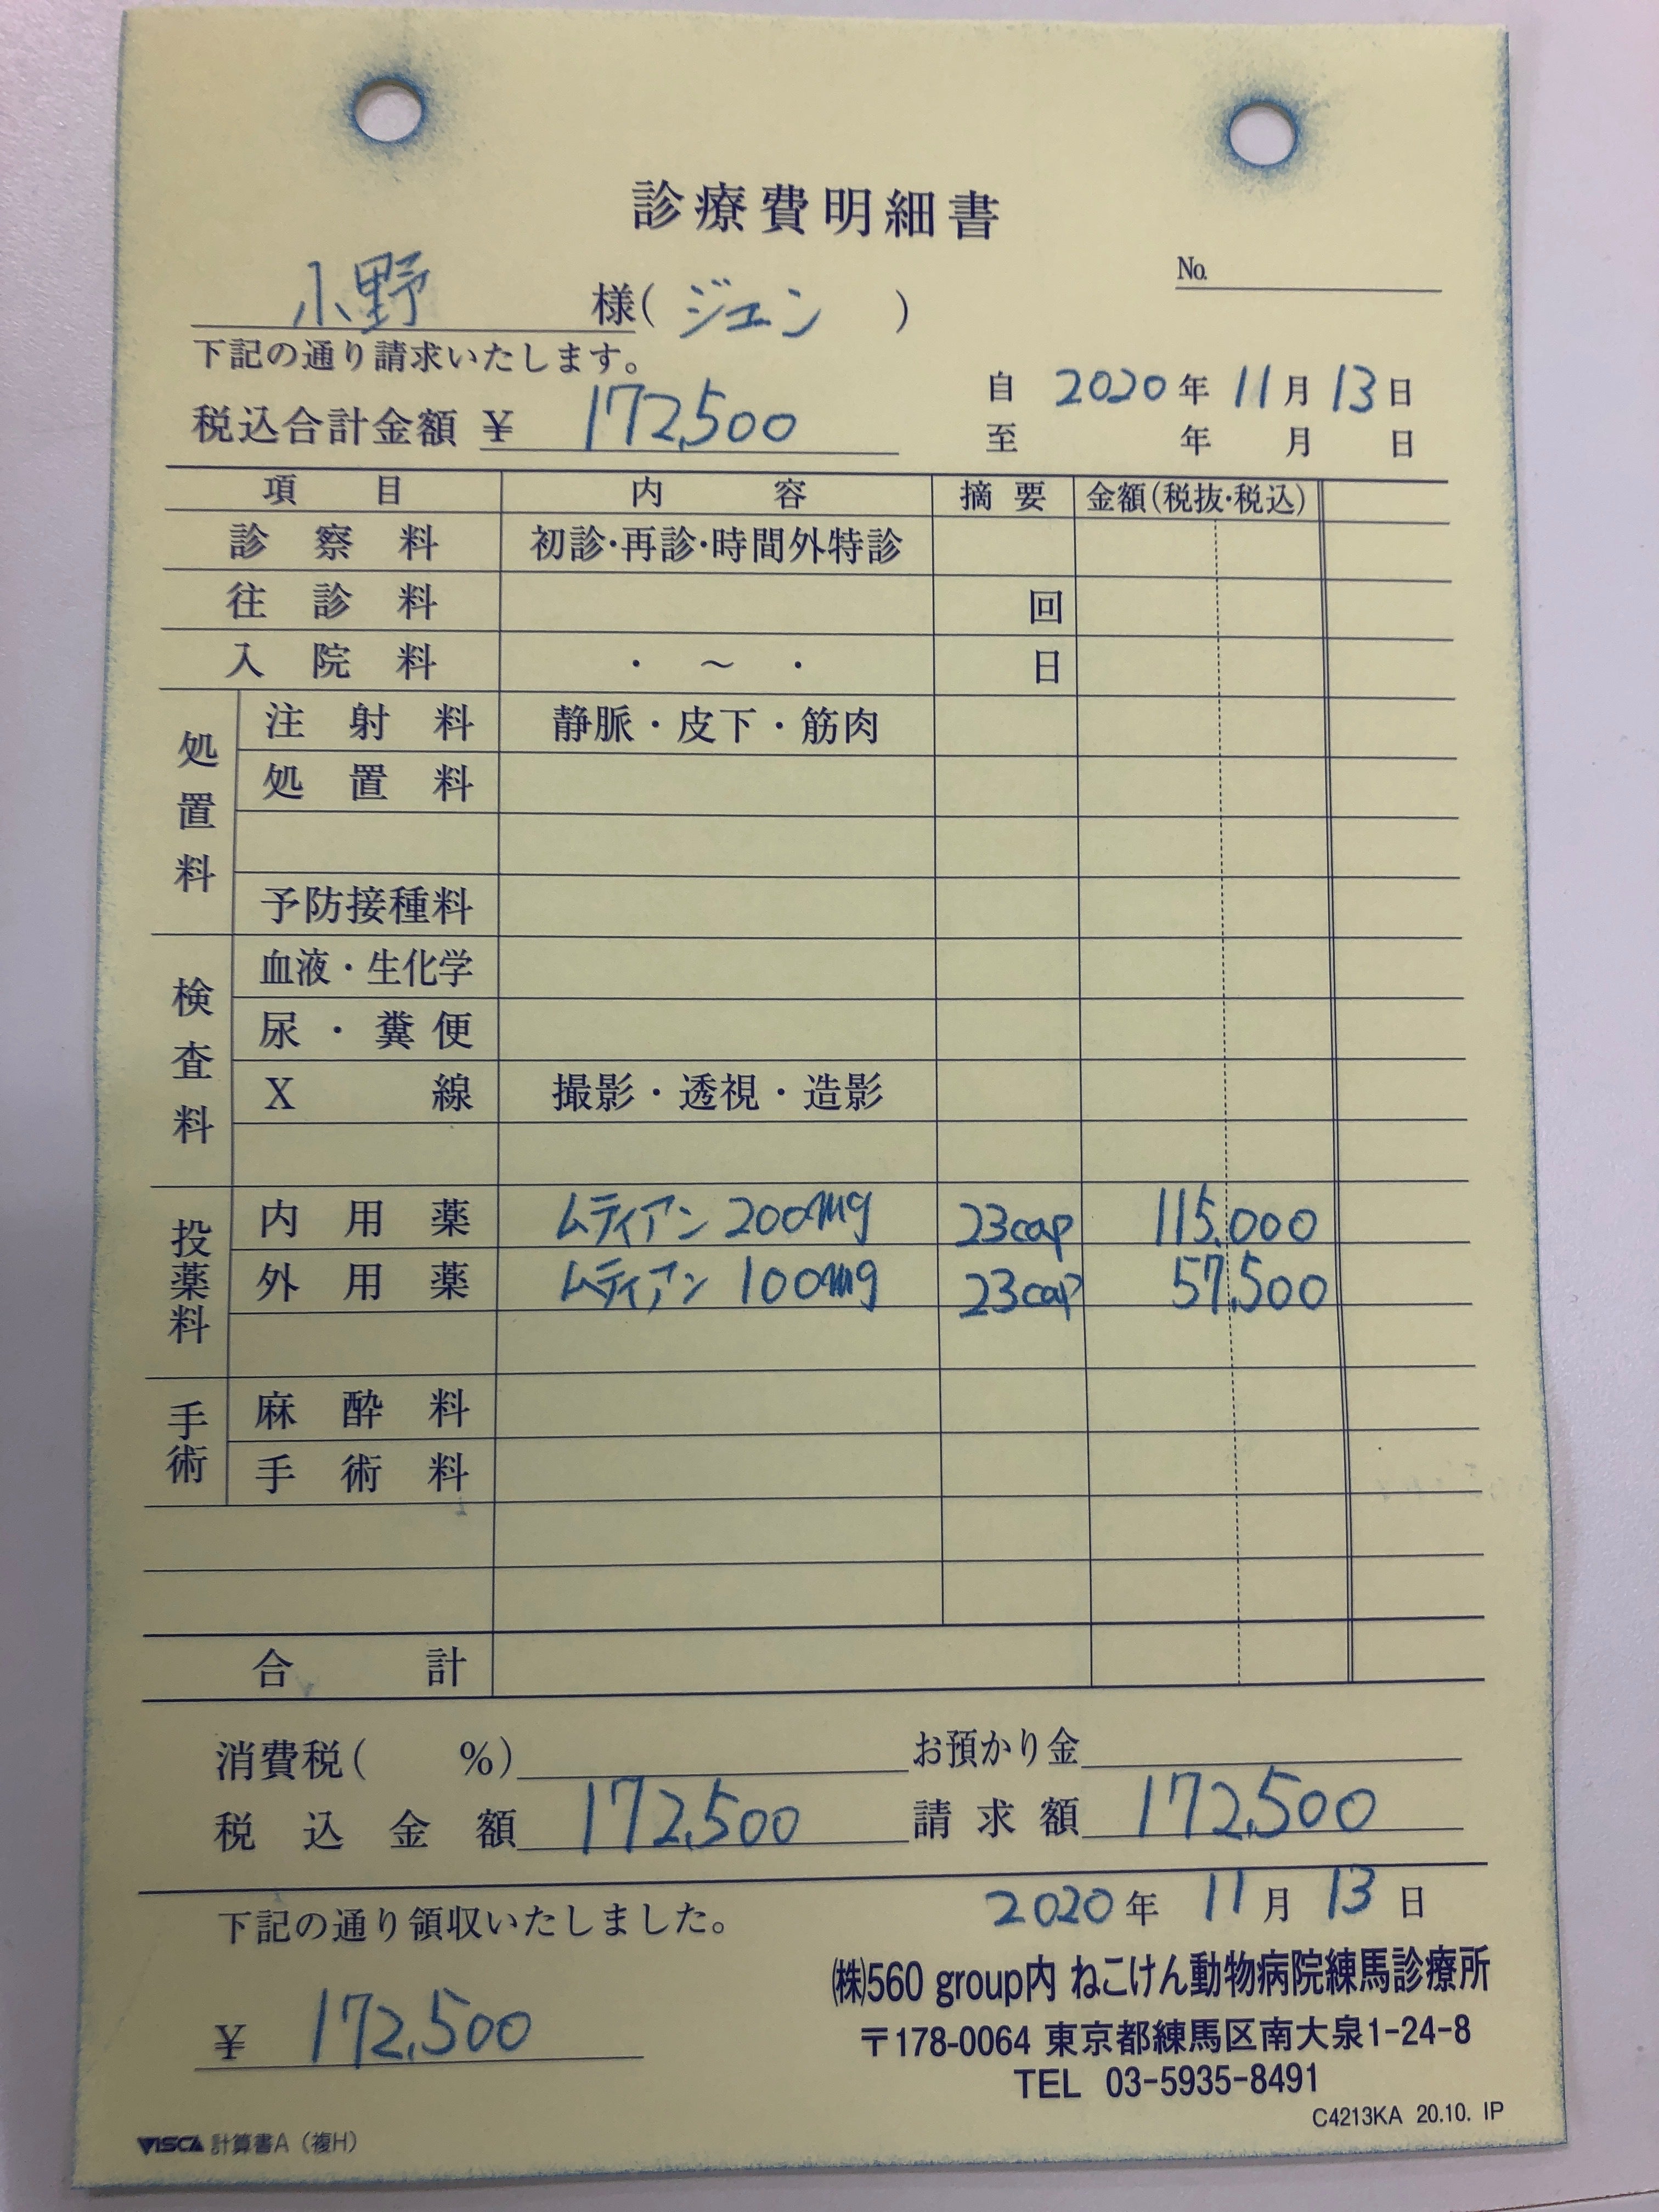 診療費明細書
No.
小野 様(ジェン)
下記の通り請求いたします。
自 2020年 11月 13日
税込合計金額 ¥ 172,500
至 年 月 日
項目 内容 摘要 金額(税抜・税込)
診察料 初診・再診・時間外特診
往診料 回
入院料 ・ ～ ・ 日
処置料
注射料 静脈・皮下・筋肉
処置料
予防接種料
検査料
血液・生化学
尿・糞便
X線 撮影・透視・造影
投薬料
内用薬 ムティアン 200mg 23cap 115,000
外用薬 ムティアン 100mg 23cap 57,500
手術
麻酔料
手術料
合計
消費税( %) お預かり金
税込金額 172,500 請求額 172,500
下記の通り領収いたしました。 2020年 11月 13日
㈱560 group内 ねこけん動物病院練馬診療所
¥ 172,500
〒178-0064 東京都練馬区南大泉1-24-8
TEL 03-5935-8491
C4213KA 20.10. IP
VISCA 計算書A（複H）